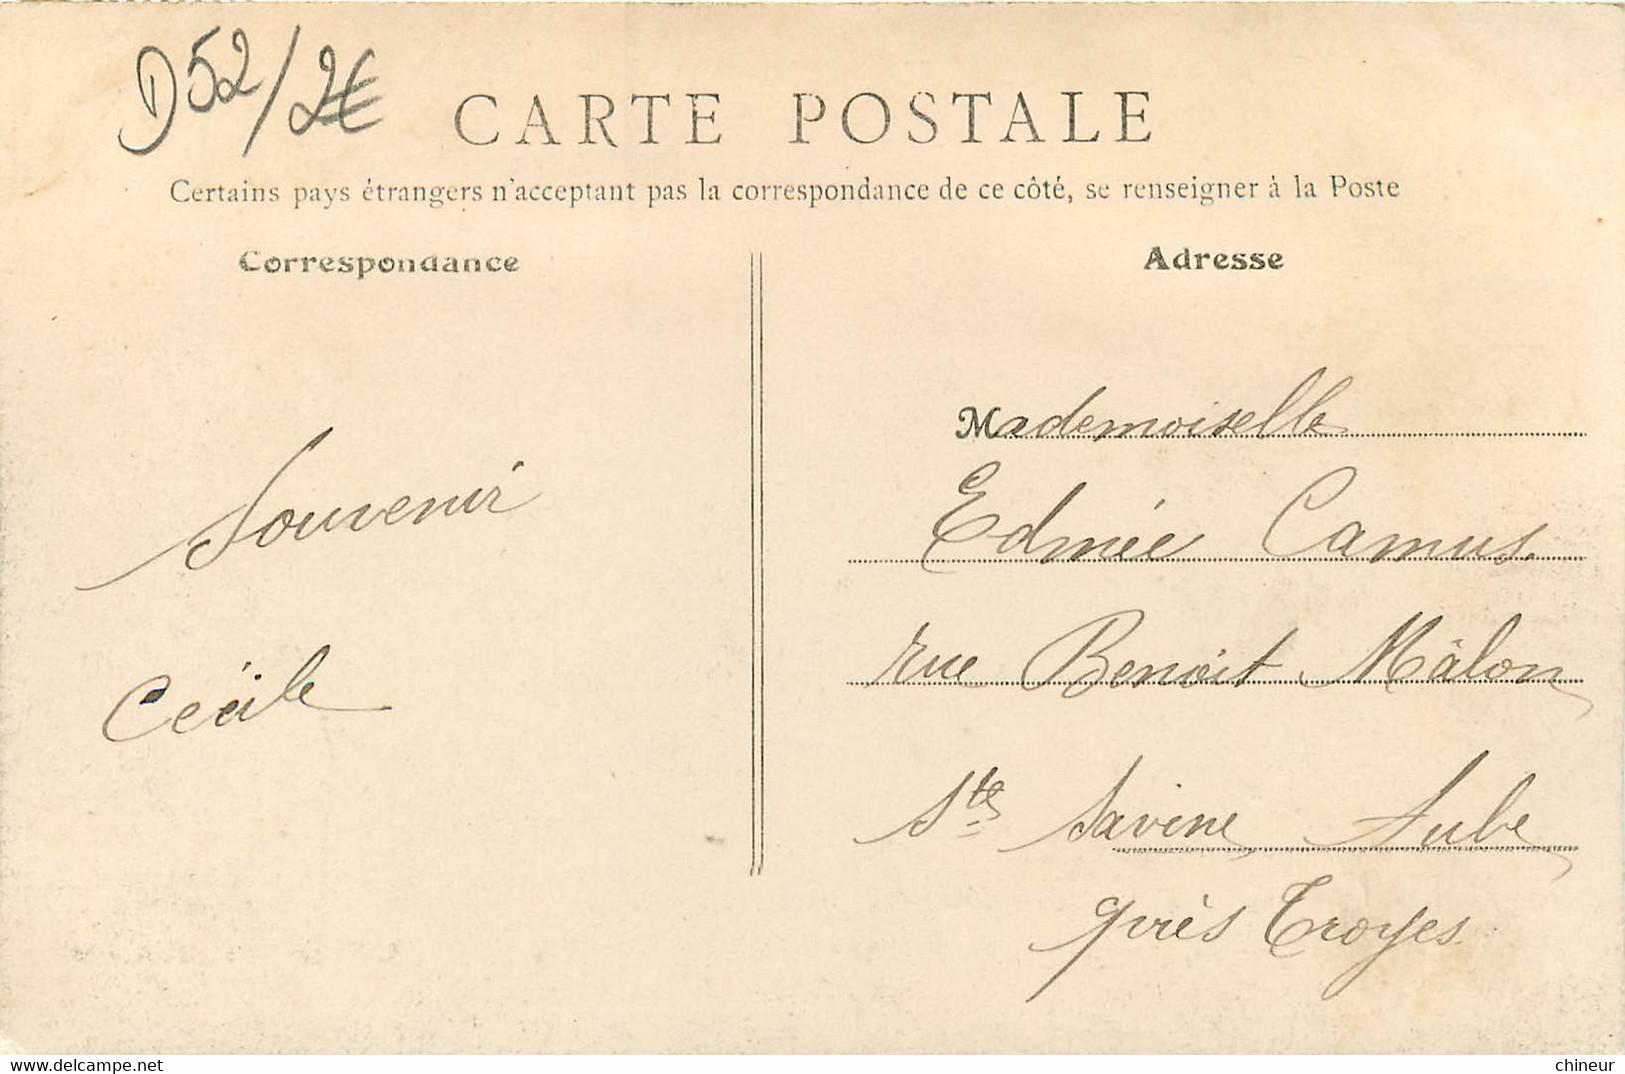 D52/2€
CARTE POSTALE
Certains pays étrangers n'acceptant pas la correspondance de ce côté, se renseigner à la Poste
Correspondance
Adresse
Souvenir
Cécile
Mademoiselle
Edmée Camus
rue Benoit Mâlon
Ste Savine Aube
près Troyes
https://www.delcampe.net
chineur